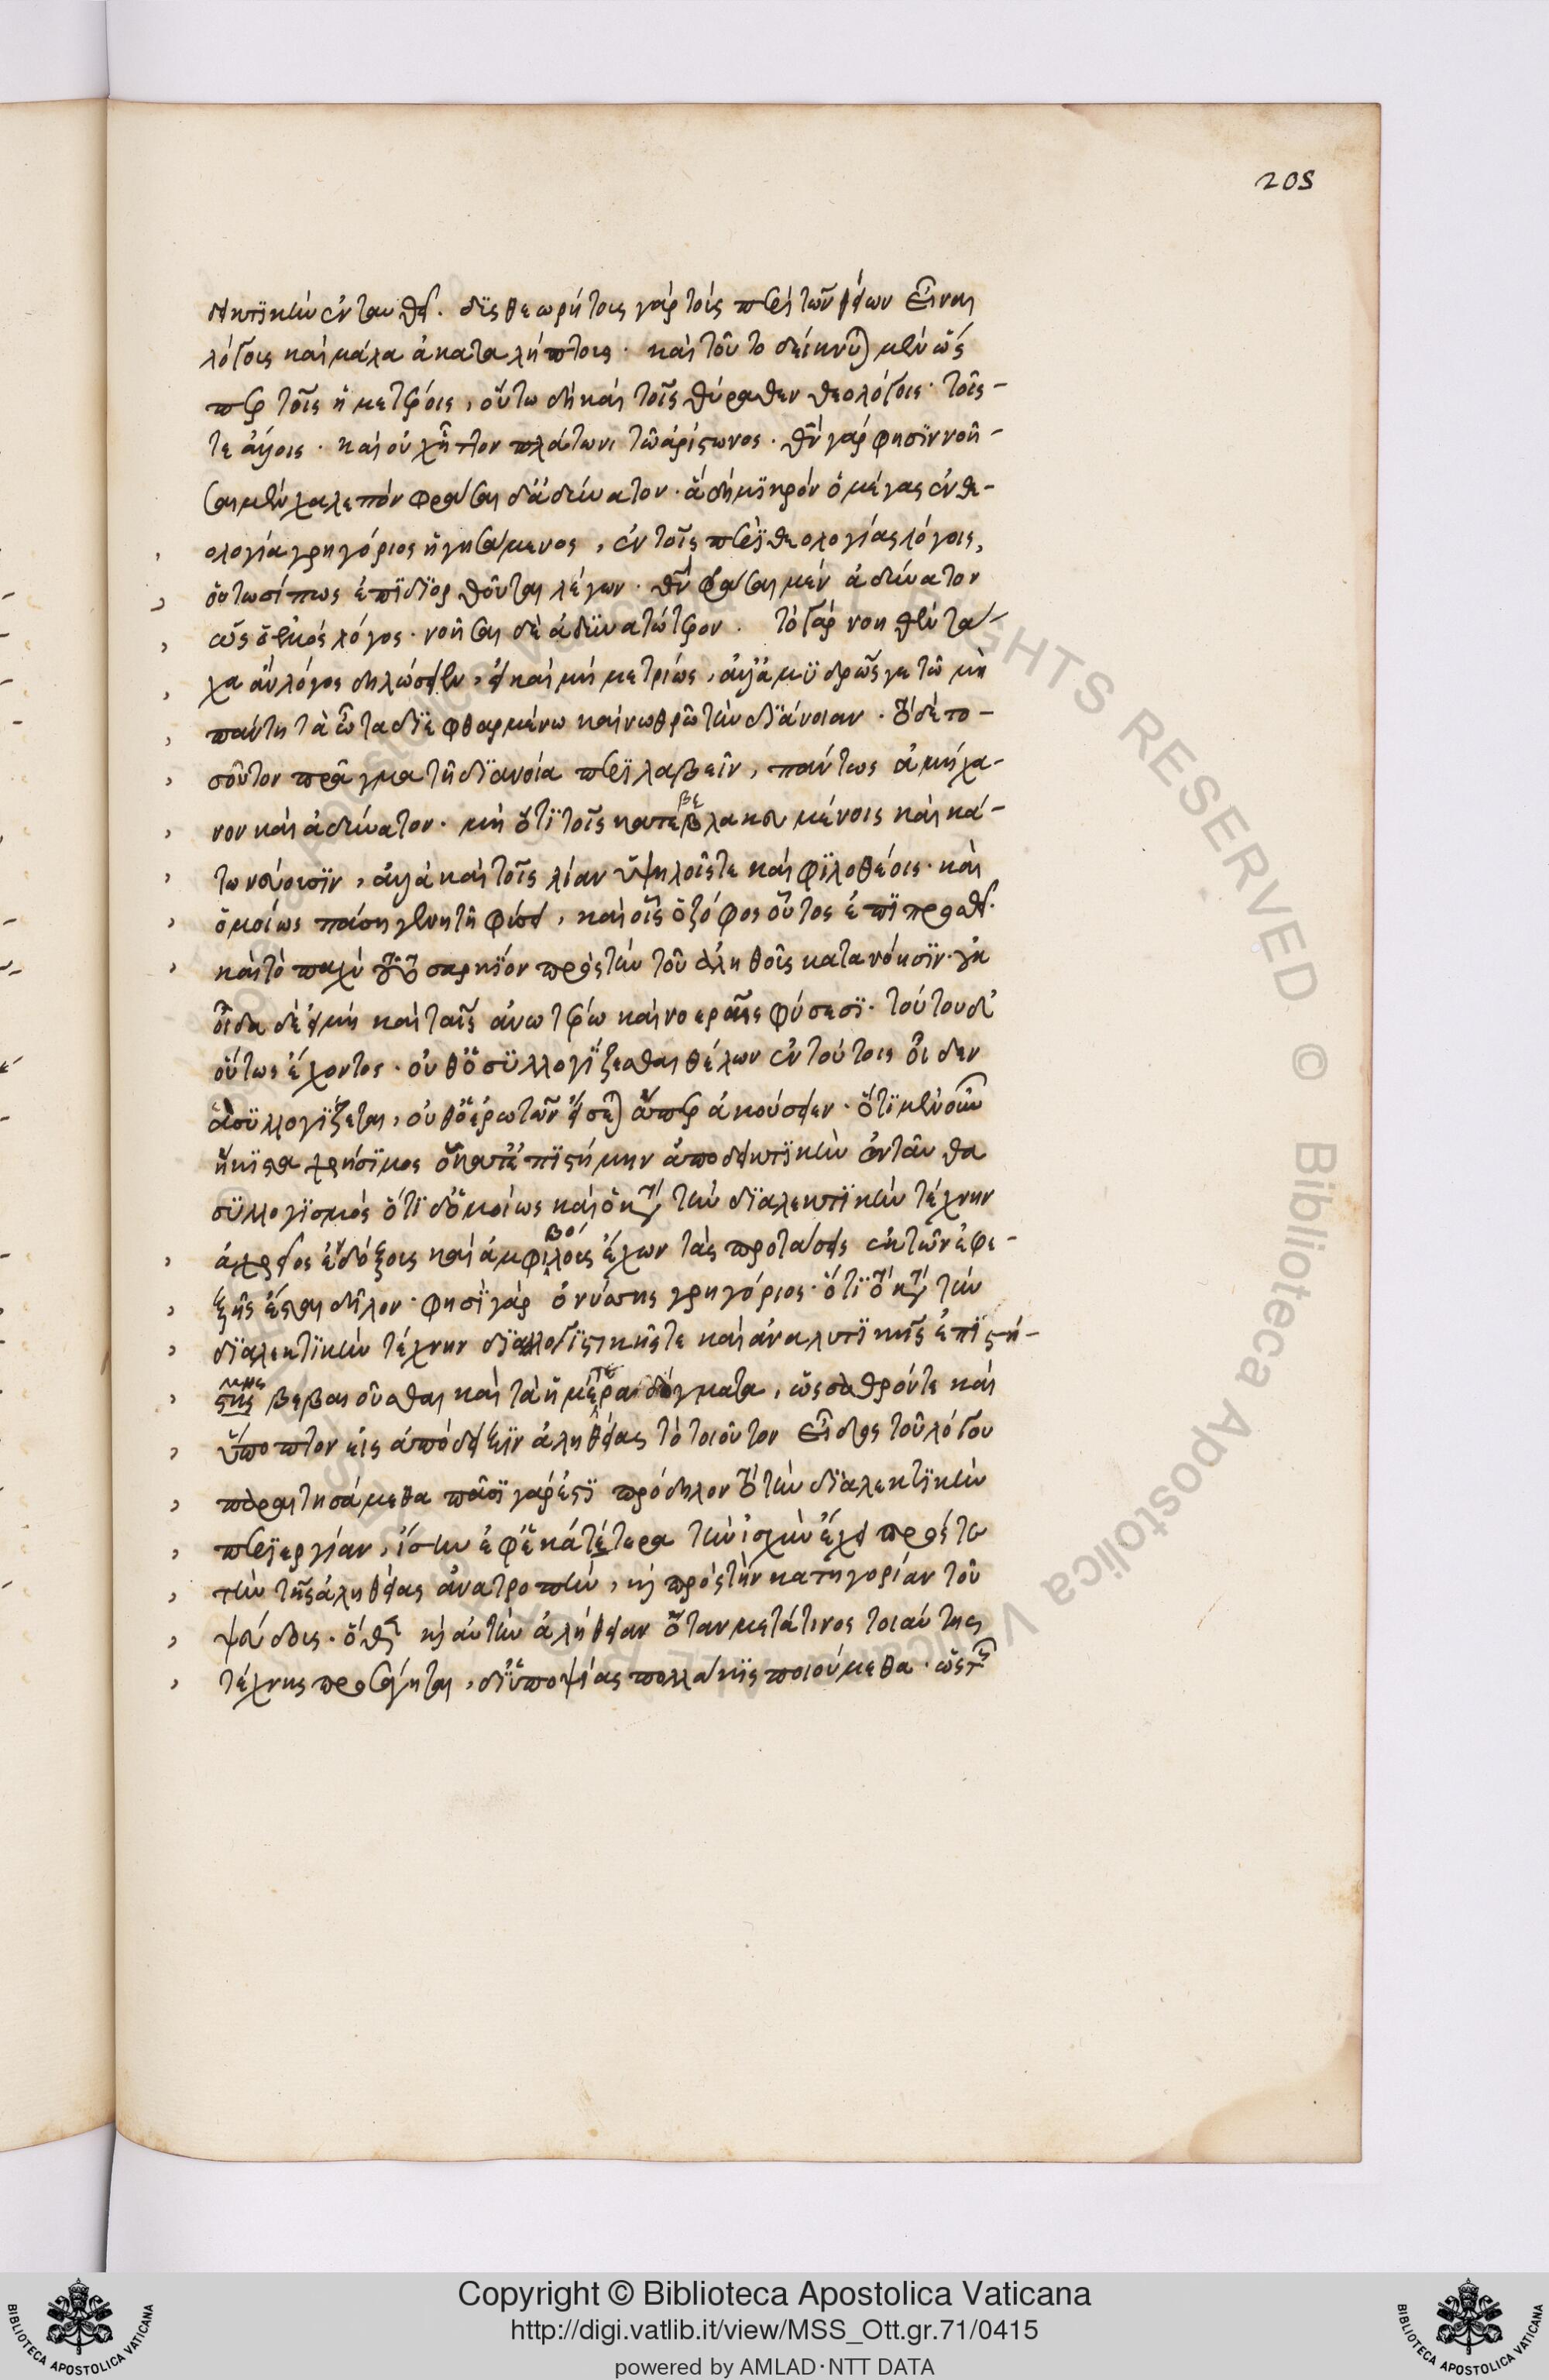 205
δεικτικὴν ἐνταῦθα. δυσθεωρήτοις γὰρ τοῖς περὶ τῶν θείων εἶναι
λόγοις καὶ μάλα ἀκαταλήπτοις. καὶ τοῦτο δείκνυται μὲν ὥς
περ τοῖς ἡμετέροις, οὕτω δὴ καὶ τοῖς θύραθεν θεολόγοις. τοῖς
τε ἄλλοις. καὶ οὐχ ἧττον πλάτωνι τῷ ἀρίστωνος. θεὸν γάρ φησιν νοῆ-
σαι μὲν χαλεπὸν φράσαι δ' ἀδύνατον. ὃ δὴ μικρὸν ὁ μέγας ἐν θε-
ολογία γρηγόριος ἡγησάμενος, ἐν τοῖς περὶ θεολογίας λόγοις,
οὑτωσί πως ἐπιδιορθοῦται λέγων. θεὸν φράσαι μὲν ἀδύνατον
ὡς ὁ ἐμὸς λόγος. νοῆσαι δὲ ἀδυνατώτερον. τὸ γὰρ νοηθὲν τά-
χα ἂν λόγος δηλώσειεν, εἰ καὶ μὴ μετρίως, ἀλλ' ἀμυδρῶς γε τῷ μὴ
πάντη τὰ ὦτα διεφθαρμένω καὶ νωθρῷ τὴν διάνοιαν. τὸ δὲ το-
σοῦτον πρᾶγμα τῇ διανοία περιλαβεῖν, πάντως ἀμήχα-
νον καὶ ἀδύνατον. μὴ ὅτι τοῖς καταβεβλακευμένοις καὶ κά-
τω νεύουσιν, ἀλλὰ καὶ τοῖς λίαν ὑψηλοῖς τε καὶ φιλοθέοις. καὶ
ὁμοίως πάση γεννητῇ φύσει, καὶ οἷς ὁ ζόφος οὗτος ἐπιπροσθεῖ.
καὶ τὸ παχὺ τοῦτο σαρκίον πρὸς τὴν τοῦ ἀληθοῦς κατανόησιν. οὐκ
οἶδα δὲ εἰ μὴ καὶ ταῖς ἀνωτέρω καὶ νοεραῖς φύσεσι. τούτου δ'
οὕτως ἔχοντος. οὐθ' ὁ συλλογίζεσθαι θέλων ἐν τούτοις οἶδεν
ἃ συλλογίζεται, οὐθ' ὁ ἐρωτῶν εἴσεται ἅπερ ἀκούσειεν. ὅτι μὲν οὖν
ἥκιστα χρήσιμος ὁ κατ' ἐπιστήμην ἀποδεικτικὴν ἐνταῦθα
συλλογισμὸς ὅτι δ' ὁμοίως καὶ ὁ κατὰ τὴν διαλεκτικὴν τέχνην
ἀχρεῖος ἐνδόξοις καὶ ἀμφιβόλοις ἔχων τὰς προτάσεις ἐκ τῶν ἐφε-
ξῆς ἔσται δῆλον. φησὶ γὰρ ὁ νύσσης γρηγόριος. ὅτι τὸ κατὰ τὴν
διαλεκτικὴν τέχνην διαλλογιστικῆς τε καὶ ἀναλυτικῆς ἐπιστή-
μης βεβαιοῦσθαι καὶ τὰ ἡμέτερα δόγματα, ὡς σαθρόν τε καὶ
ὕποπτον εἰς ἀπόδειξιν ἀληθείας τὸ τοιοῦτον εἶδος τοῦ λόγου
παραιτησάμεθα πᾶσι γάρ ἐστι πρόδηλον τὸ τὴν διαλεκτικὴν
περιεργίαν, ἴσην ἐφ' ἑκάτερα τὴν ἰσχὺν ἔχει πρός τε
τὴν τῆς ἀληθείας ἀνατροπήν, καὶ πρὸς τὴν κατηγορίαν τοῦ
ψεύδους. ὅθεν καὶ αὐτὴν ἀλήθειαν ὅταν μετά τινος τοιαύτης
τέχνης προσάγηται, δι' ὑποψίας πολλάκις ποιούμεθα. ὡς τὴν
Copyright © Biblioteca Apostolica Vaticana
http://digi.vatlib.it/view/MSS_Ott.gr.71/0415
powered by AMLAD·NTT DATA